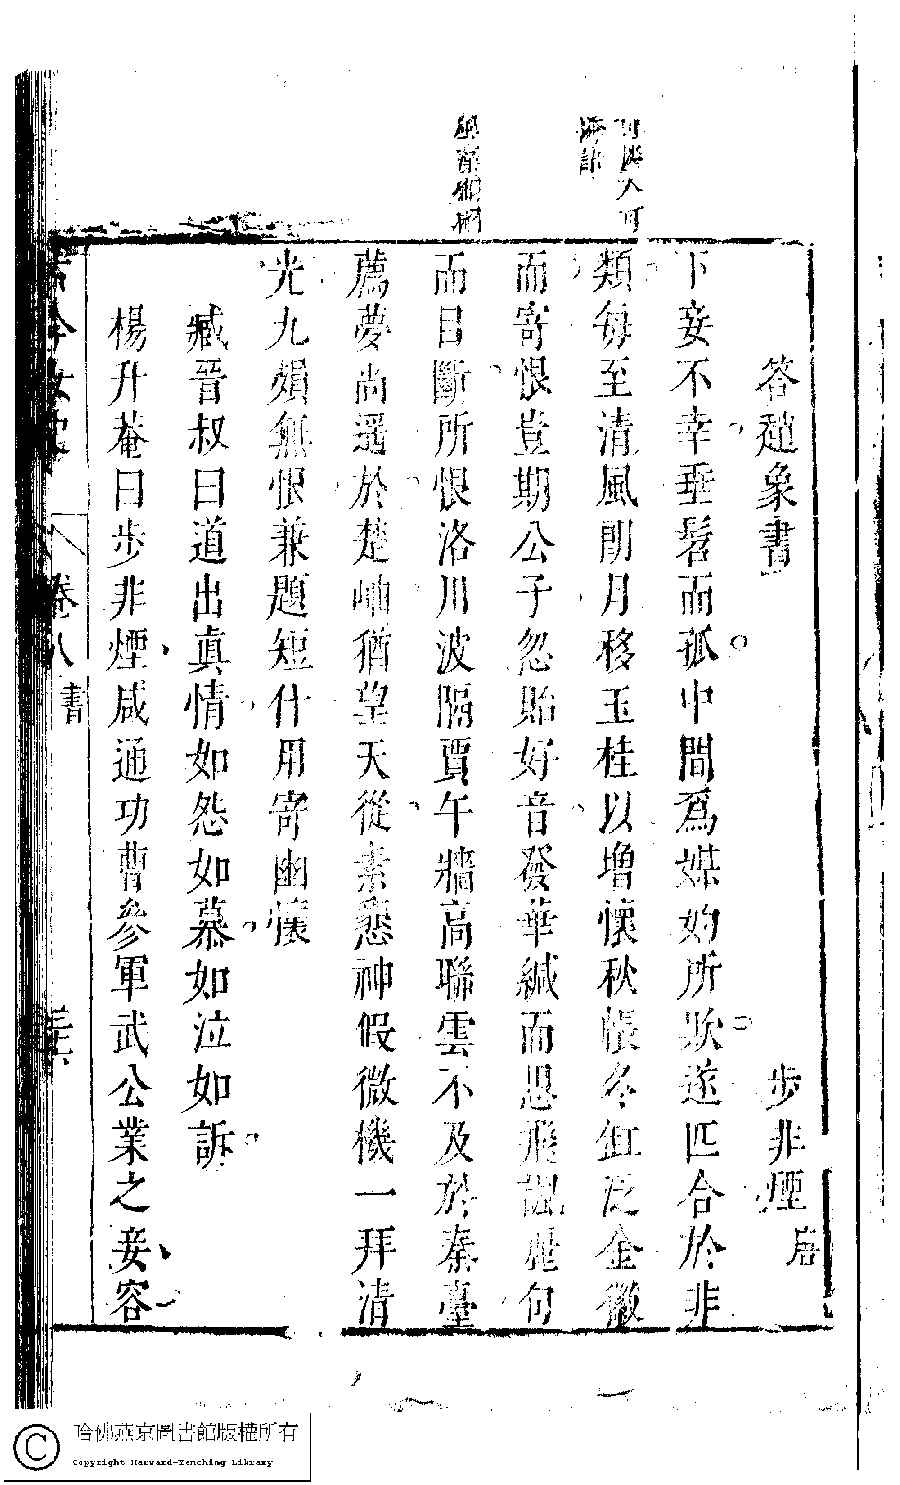 答趙象書
步非煙 唐
下妾不幸垂髫而孤中間爲媒妁所欺遂匹合於非
類每至清風朗月移玉桂以增懷秋帳冬釭泛金徽
而寄恨豈期公子忽貽好音發華緘而思飛諷麗句
而目斷所恨洛川波隔賈午牆高聯雲不及於秦臺
薦夢尚遥於楚岫猶望天從素懇神假微機一拜清
光九殞無恨兼題短什用寄幽懷
臧晉叔曰道出眞情如怨如慕如泣如訴
楊升菴曰步非煙咸通功曹參軍武公業之妾容
卷八
書
哈佛燕京圖書館版權所有
Copyright Harvard-Yenching Library